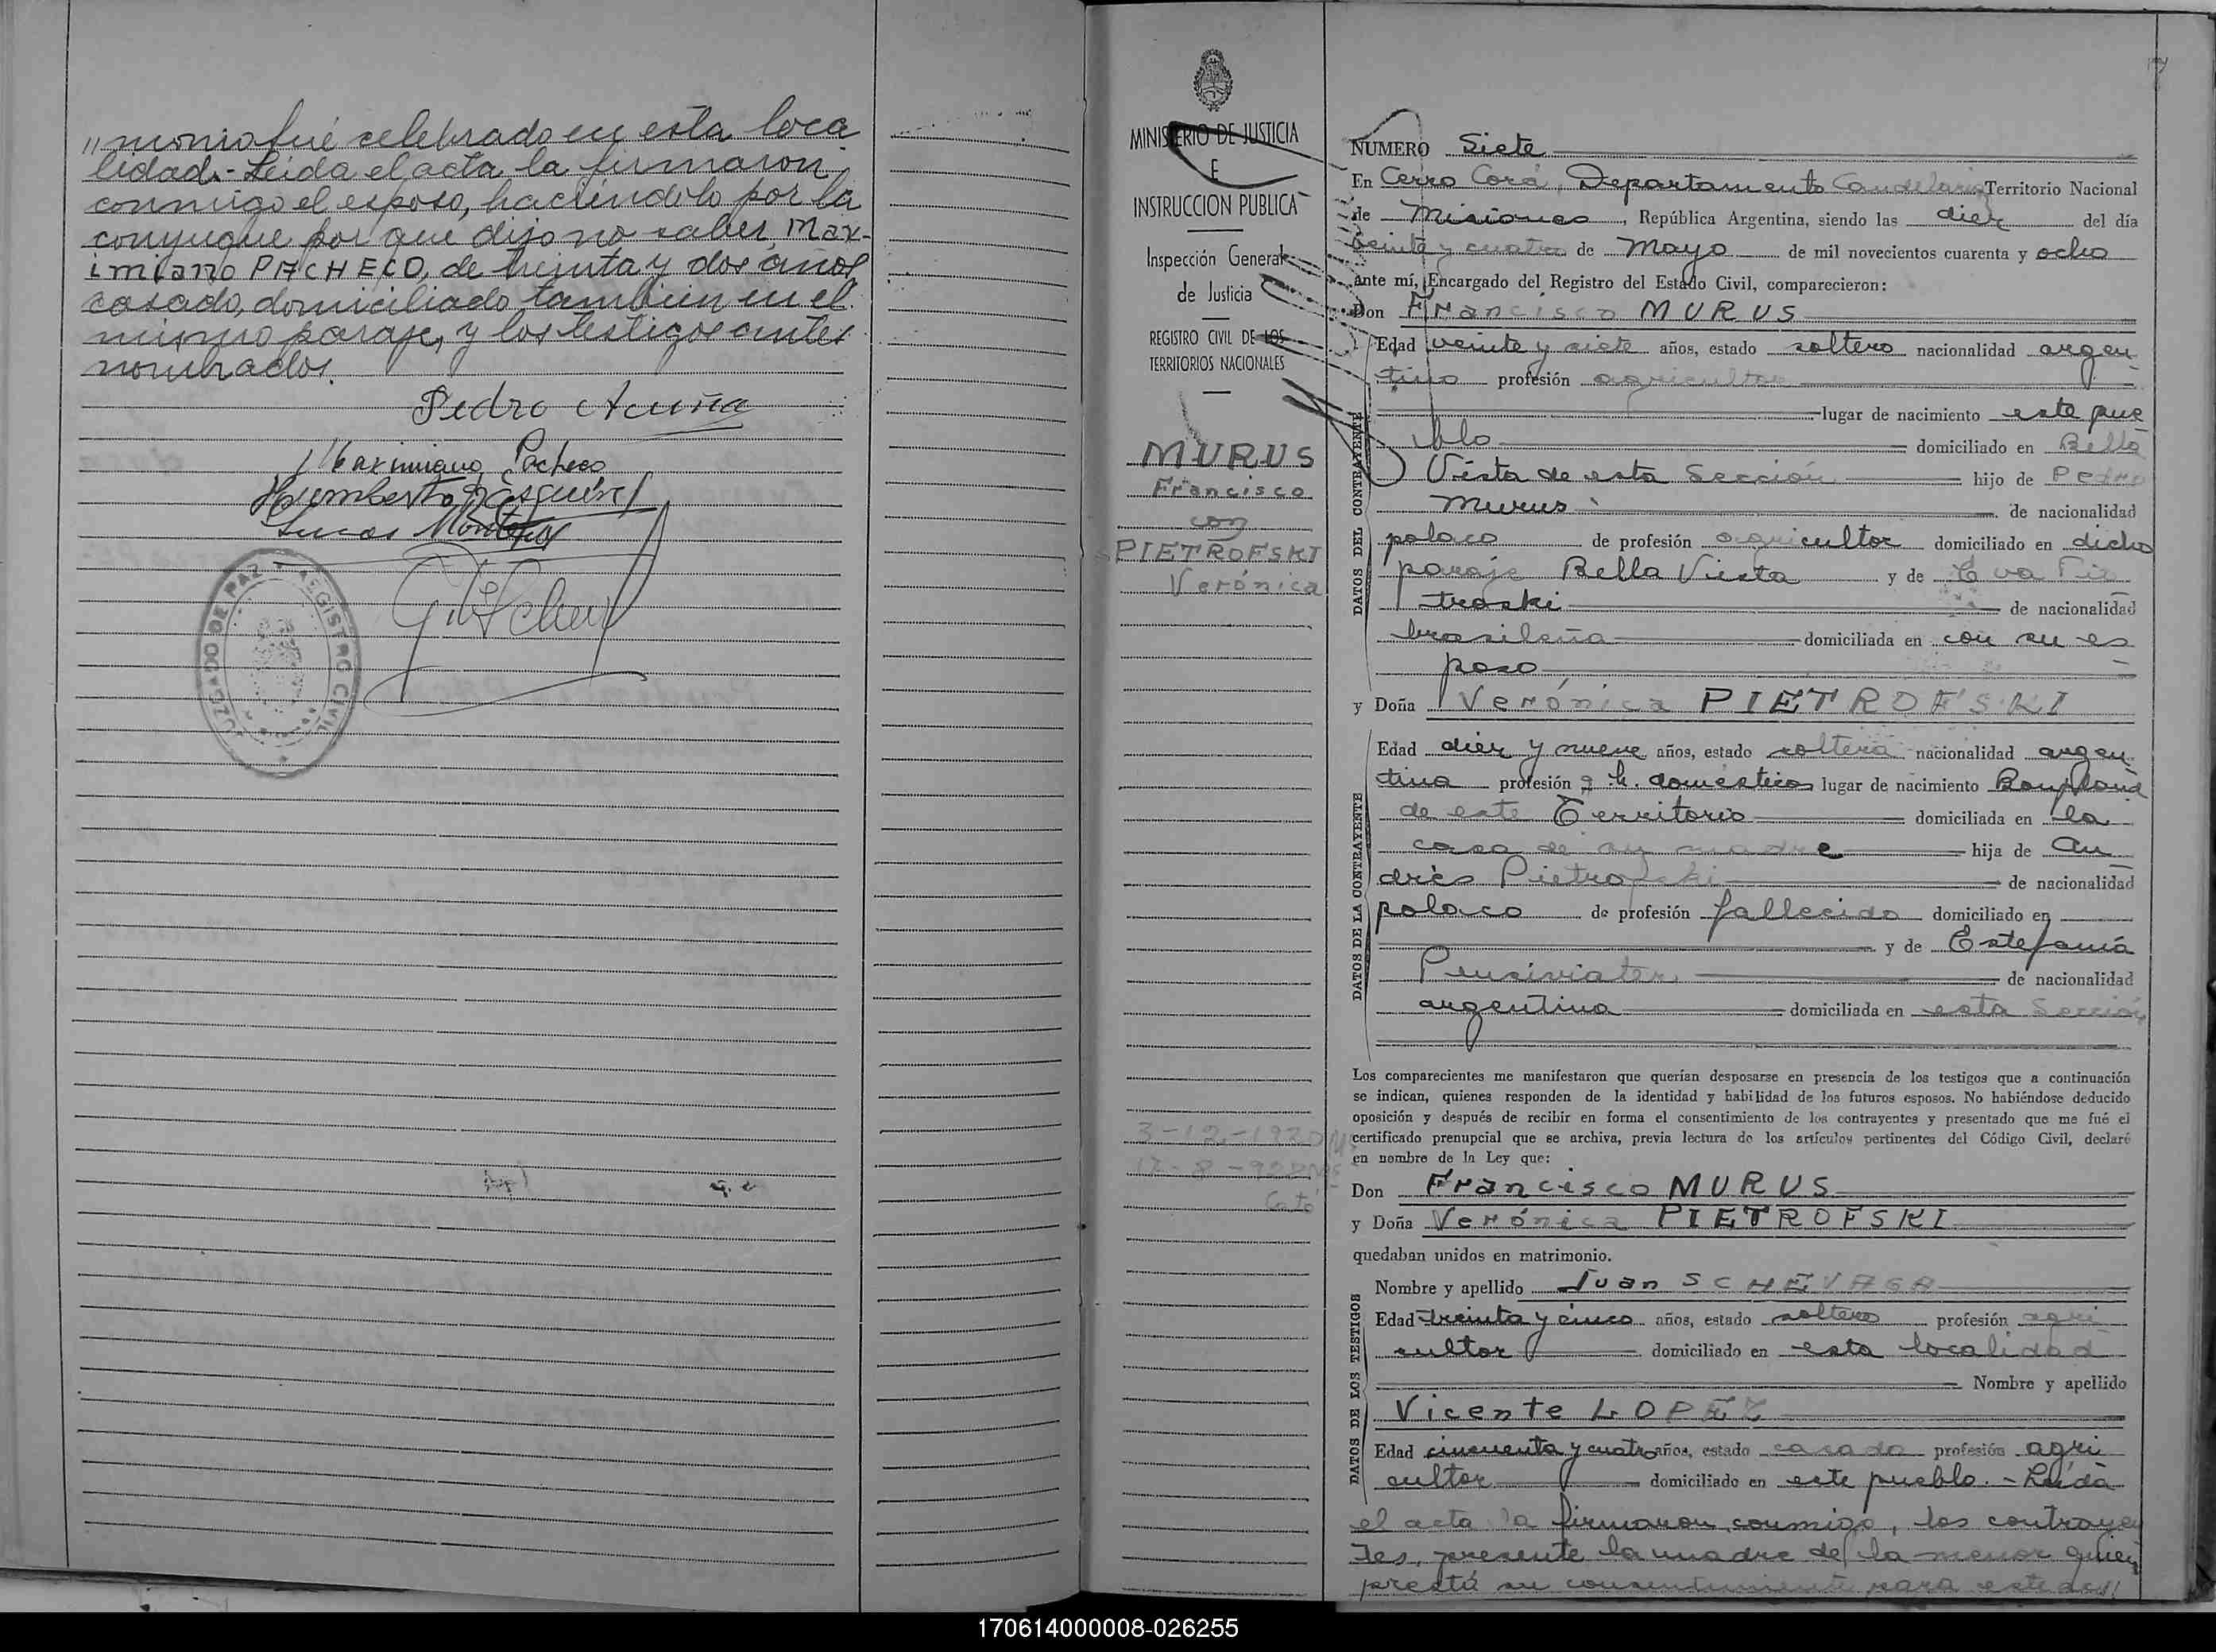 "monio fué celebrado en esta loca
lidad.- Leída el acta la firmaron
conmigo el esposo, haciéndolo por la
conyugue por que dijo no saber, Max-
imiano PACHECO, de treinta y dos años
casado, domiciliado tambien en el
mismo paraje, y los testigos antes
nombrados.
Pedro Acuña
Maximiano Pacheco
Humberto Esquivel
Lucas
JUZGADO DE PAZ * REGISTRO CIVIL *
MINISTERIO DE JUSTICIA
E
INSTRUCCION PUBLICA
Inspección General
de Justicia
REGISTRO CIVIL DE LOS
TERRITORIOS NACIONALES
MURUS
Francisco
con
PIETROFSKI
Verónica
NUMERO Siete
En Cerro Corá, Departamento Candelaria Territorio Nacional
de Misiones, República Argentina, siendo las diez del día
veinte y cuatro de Mayo de mil novecientos cuarenta y ocho
ante mí, Encargado del Registro del Estado Civil, comparecieron:
Don Francisco MURUS
DATOS DEL CONTRAYENTE
Edad veinte y siete años, estado soltero nacionalidad argen
tino profesión agricultor
lugar de nacimiento este pue
blo domiciliado en Bella
Vista de esta Sección hijo de Pedro
Murus de nacionalidad
polaco de profesión agricultor domiciliado en dicho
paraje Bella Vista y de Eva Pie
troski de nacionalidad
brasileña domiciliada en con su es
poso
y Doña Verónica PIETROFSKI
DATOS DE LA CONTRAYENTE
Edad diez y nueve años, estado soltera nacionalidad argen
tina profesión q. h. domésticos lugar de nacimiento Bonpland
de este Territorio domiciliada en la
casa de su madre hija de An
drés Pietrofski de nacionalidad
polaco de profesión fallecido domiciliado en
y de Estefanía
de nacionalidad
argentina domiciliada en esta Sección
Los comparecientes me manifestaron que querían desposarse en presencia de los testigos que a continuación
se indican, quienes responden de la identidad y habilidad de los futuros esposos. No habiéndose deducido
oposición y después de recibir en forma el consentimiento de los contrayentes y presentado que me fué el
certificado prenupcial que se archiva, previa lectura de los artículos pertinentes del Código Civil, declaré
en nombre de la Ley que:
Don Francisco MURUS
y Doña Verónica PIETROFSKI
quedaban unidos en matrimonio.
DATOS DE LOS TESTIGOS
Nombre y apellido Juan SCHEVAGA
Edad treinta y cinco años, estado soltero profesión agri
cultor domiciliado en esta localidad
Nombre y apellido
Vicente LOPEZ
Edad cincuenta y cuatro años, estado casado profesión agri
cultor domiciliado en este pueblo.- Leída
el acta la firmaron conmigo, los contrayen
tes, presente la madre de la menor quien
prestá su consentimiento para este
170614000008-026255